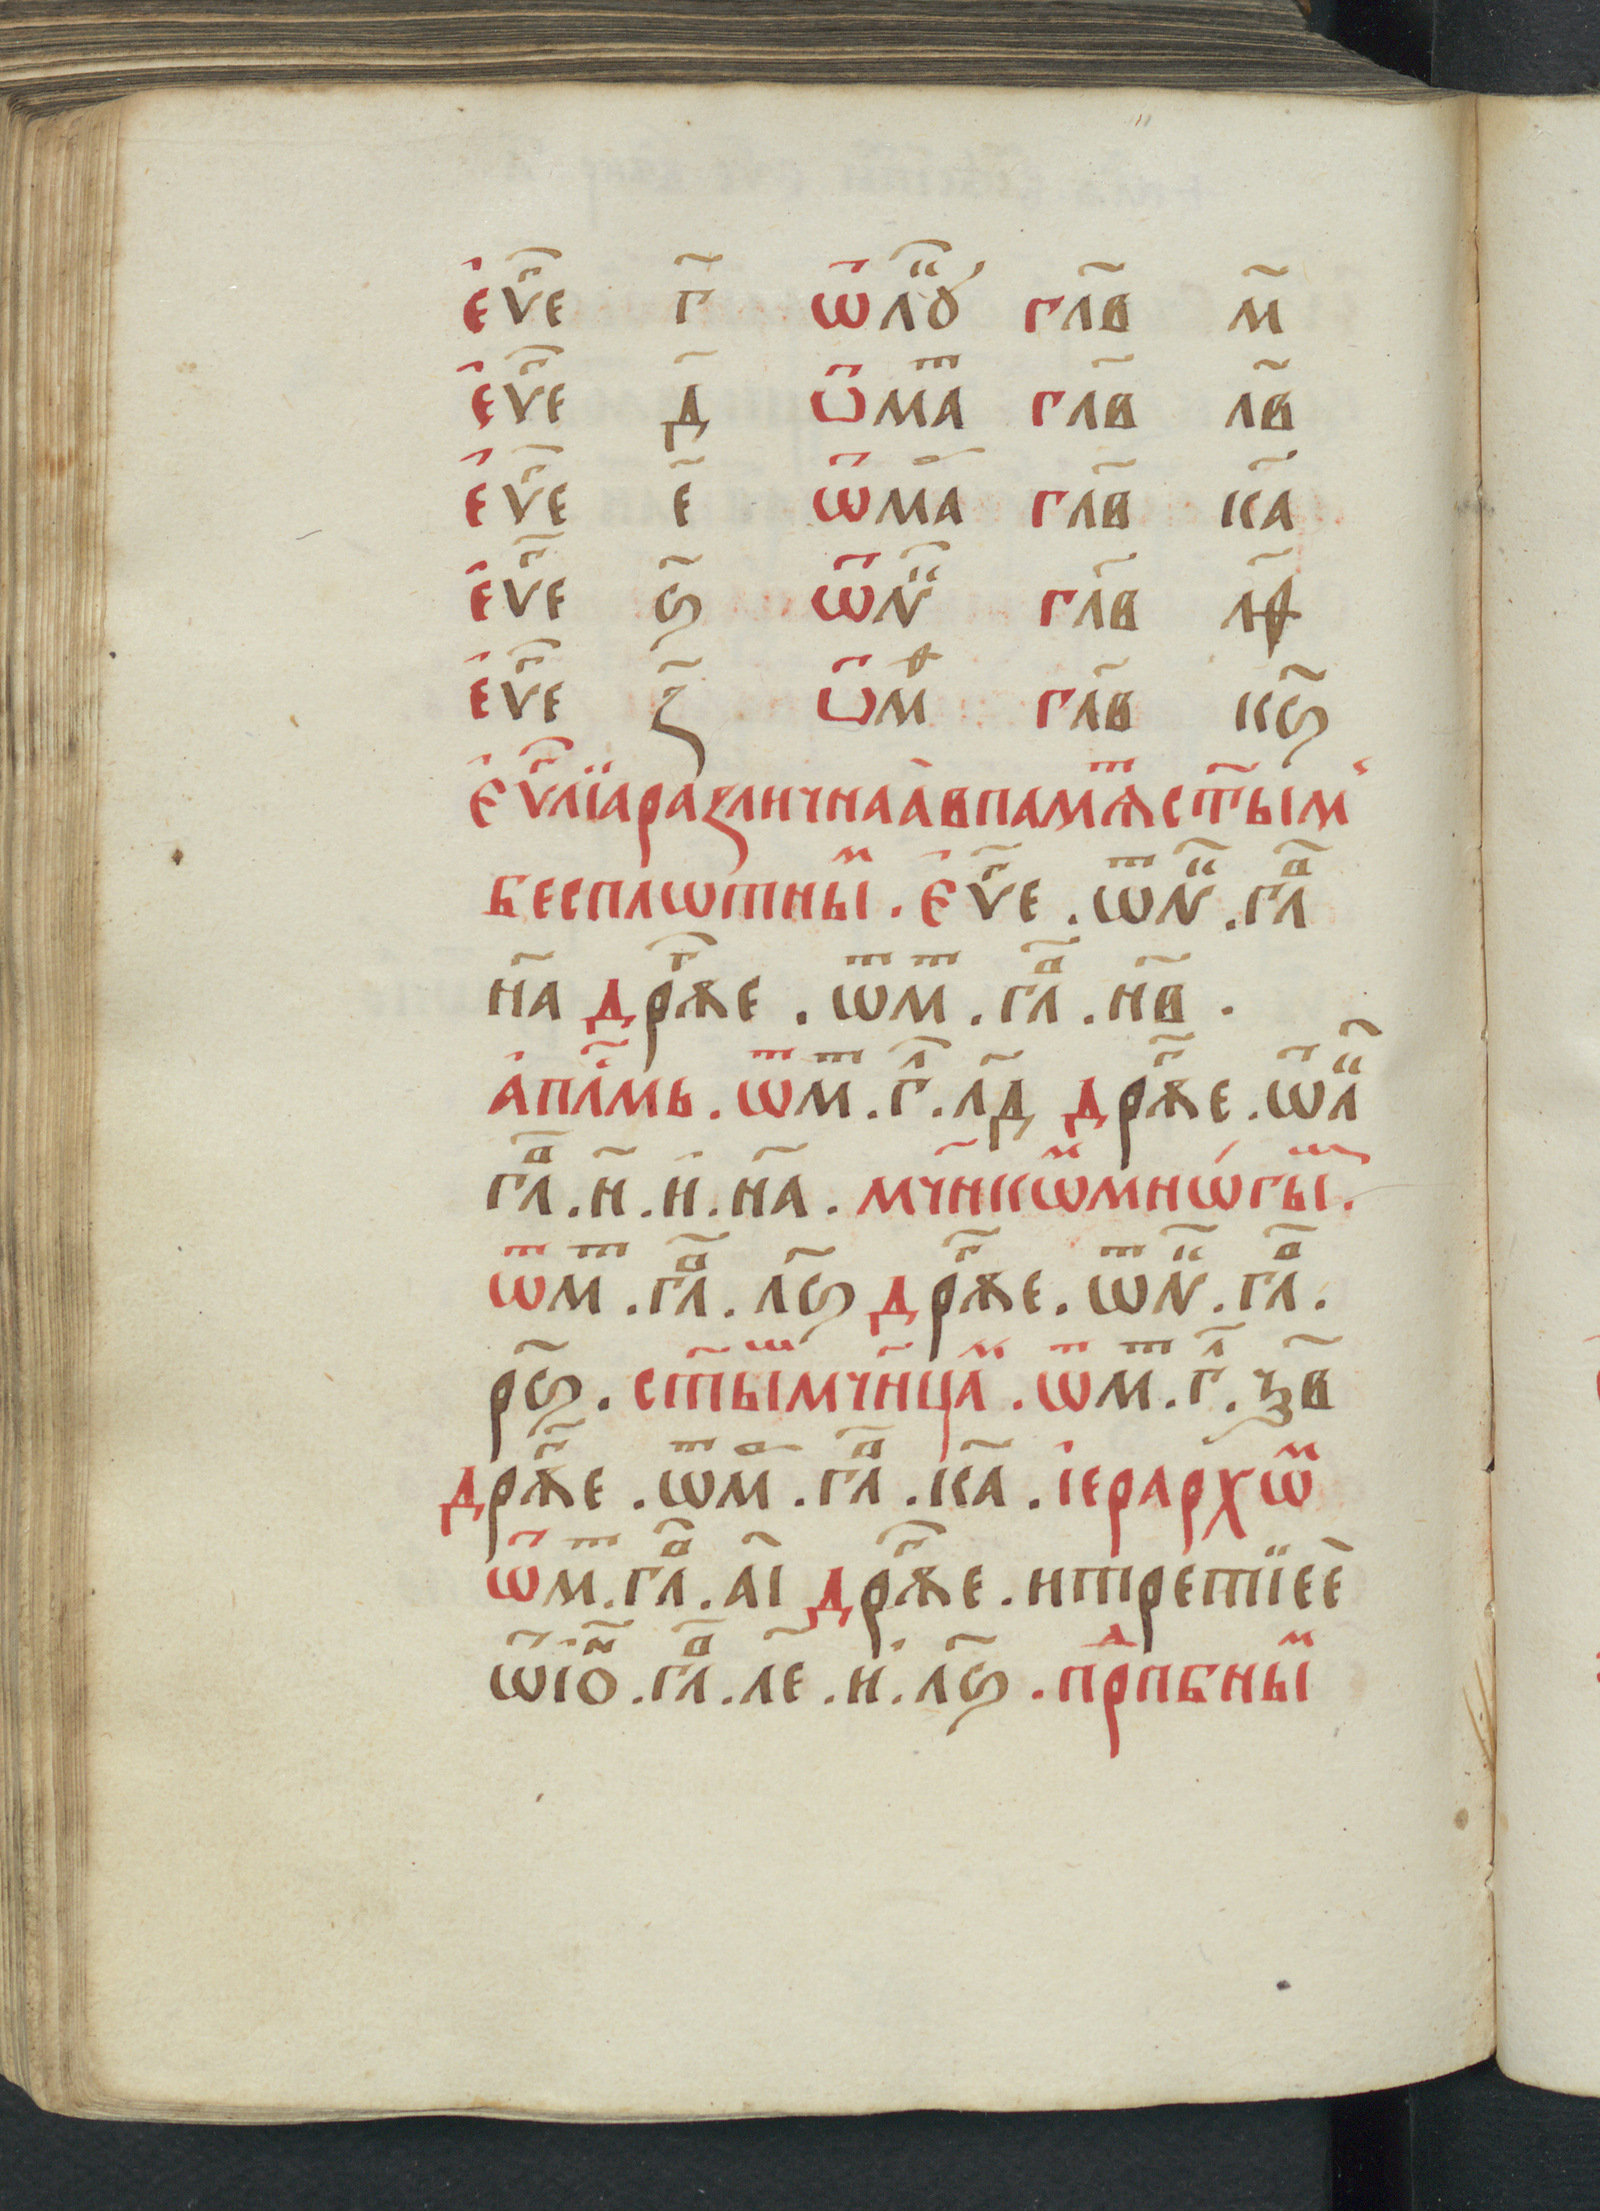 є҆ѵⷢ҇е г҃ ѿ лꙋⷦ҇ глв҃ м҃
є҆ѵⷢ҇е д҃ ѿ маⷮ глв҃ лв҃
є҆ѵⷢ҇е є҃ ѿ маⷬ глв҃ ка҃
є҆ѵⷢ҇е ѕ҃ ѿ іѡⷩ҇ глв҃ лѳ҃
є҆ѵⷢ҇е з҃ ѿ маⷴ глв҃ кѕ҃
є҆ѵⷢ҇лїа различнаа в памѧⷮ ст҃ымъ
бесплѡтныⷨ . є҆ѵⷢ҇е . ѿ лꙋⷦ҇ . глⷡ҇
на҃ дрꙋⷢ҇ѫе . ѿ мⷮ . глⷡ҇ . нв҃ .
а҆пⷭ҇лмь . ѿ мⷮ . гⷧ҇ . лд҃ дрѫⷢ҇е . ѿ лⷦ҇
глⷡ҇ . н҃ . и҆ . на҃ . мч҃нкѡⷨ мнѡ́гыⷯ .
ѿ мⷮ . глⷡ҇ . лѕ҃ дрѫⷢ҇е . ѿ лⷦ҇ . глⷡ҇ .
рѕ҃ . ст҃ыⷨ мч҃нцаⷨ . ѿ мⷮ . гⷧ҇ . ѯв҃
дрѫⷢ҇е . ѿ мⷬ . глⷡ҇ . ка҃ . і҆ерархѡⷨ
ѿ мⷮ . глⷡ҇ . аі҃ дрѫⷢ҇е . и третїее
ѿ іѡⷩ҇ . глⷡ҇ . ле҃ . и҆ . лѕ҃ . прⷣпбныⷨ